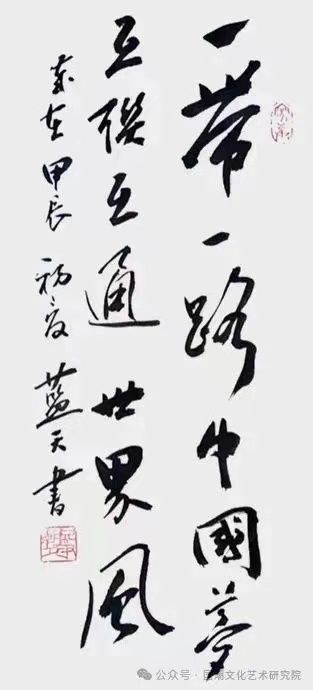 一帶一路中國夢
互聯互通世界風
歲在甲辰初夏藍天書
公众号·国潮文化艺术研究院